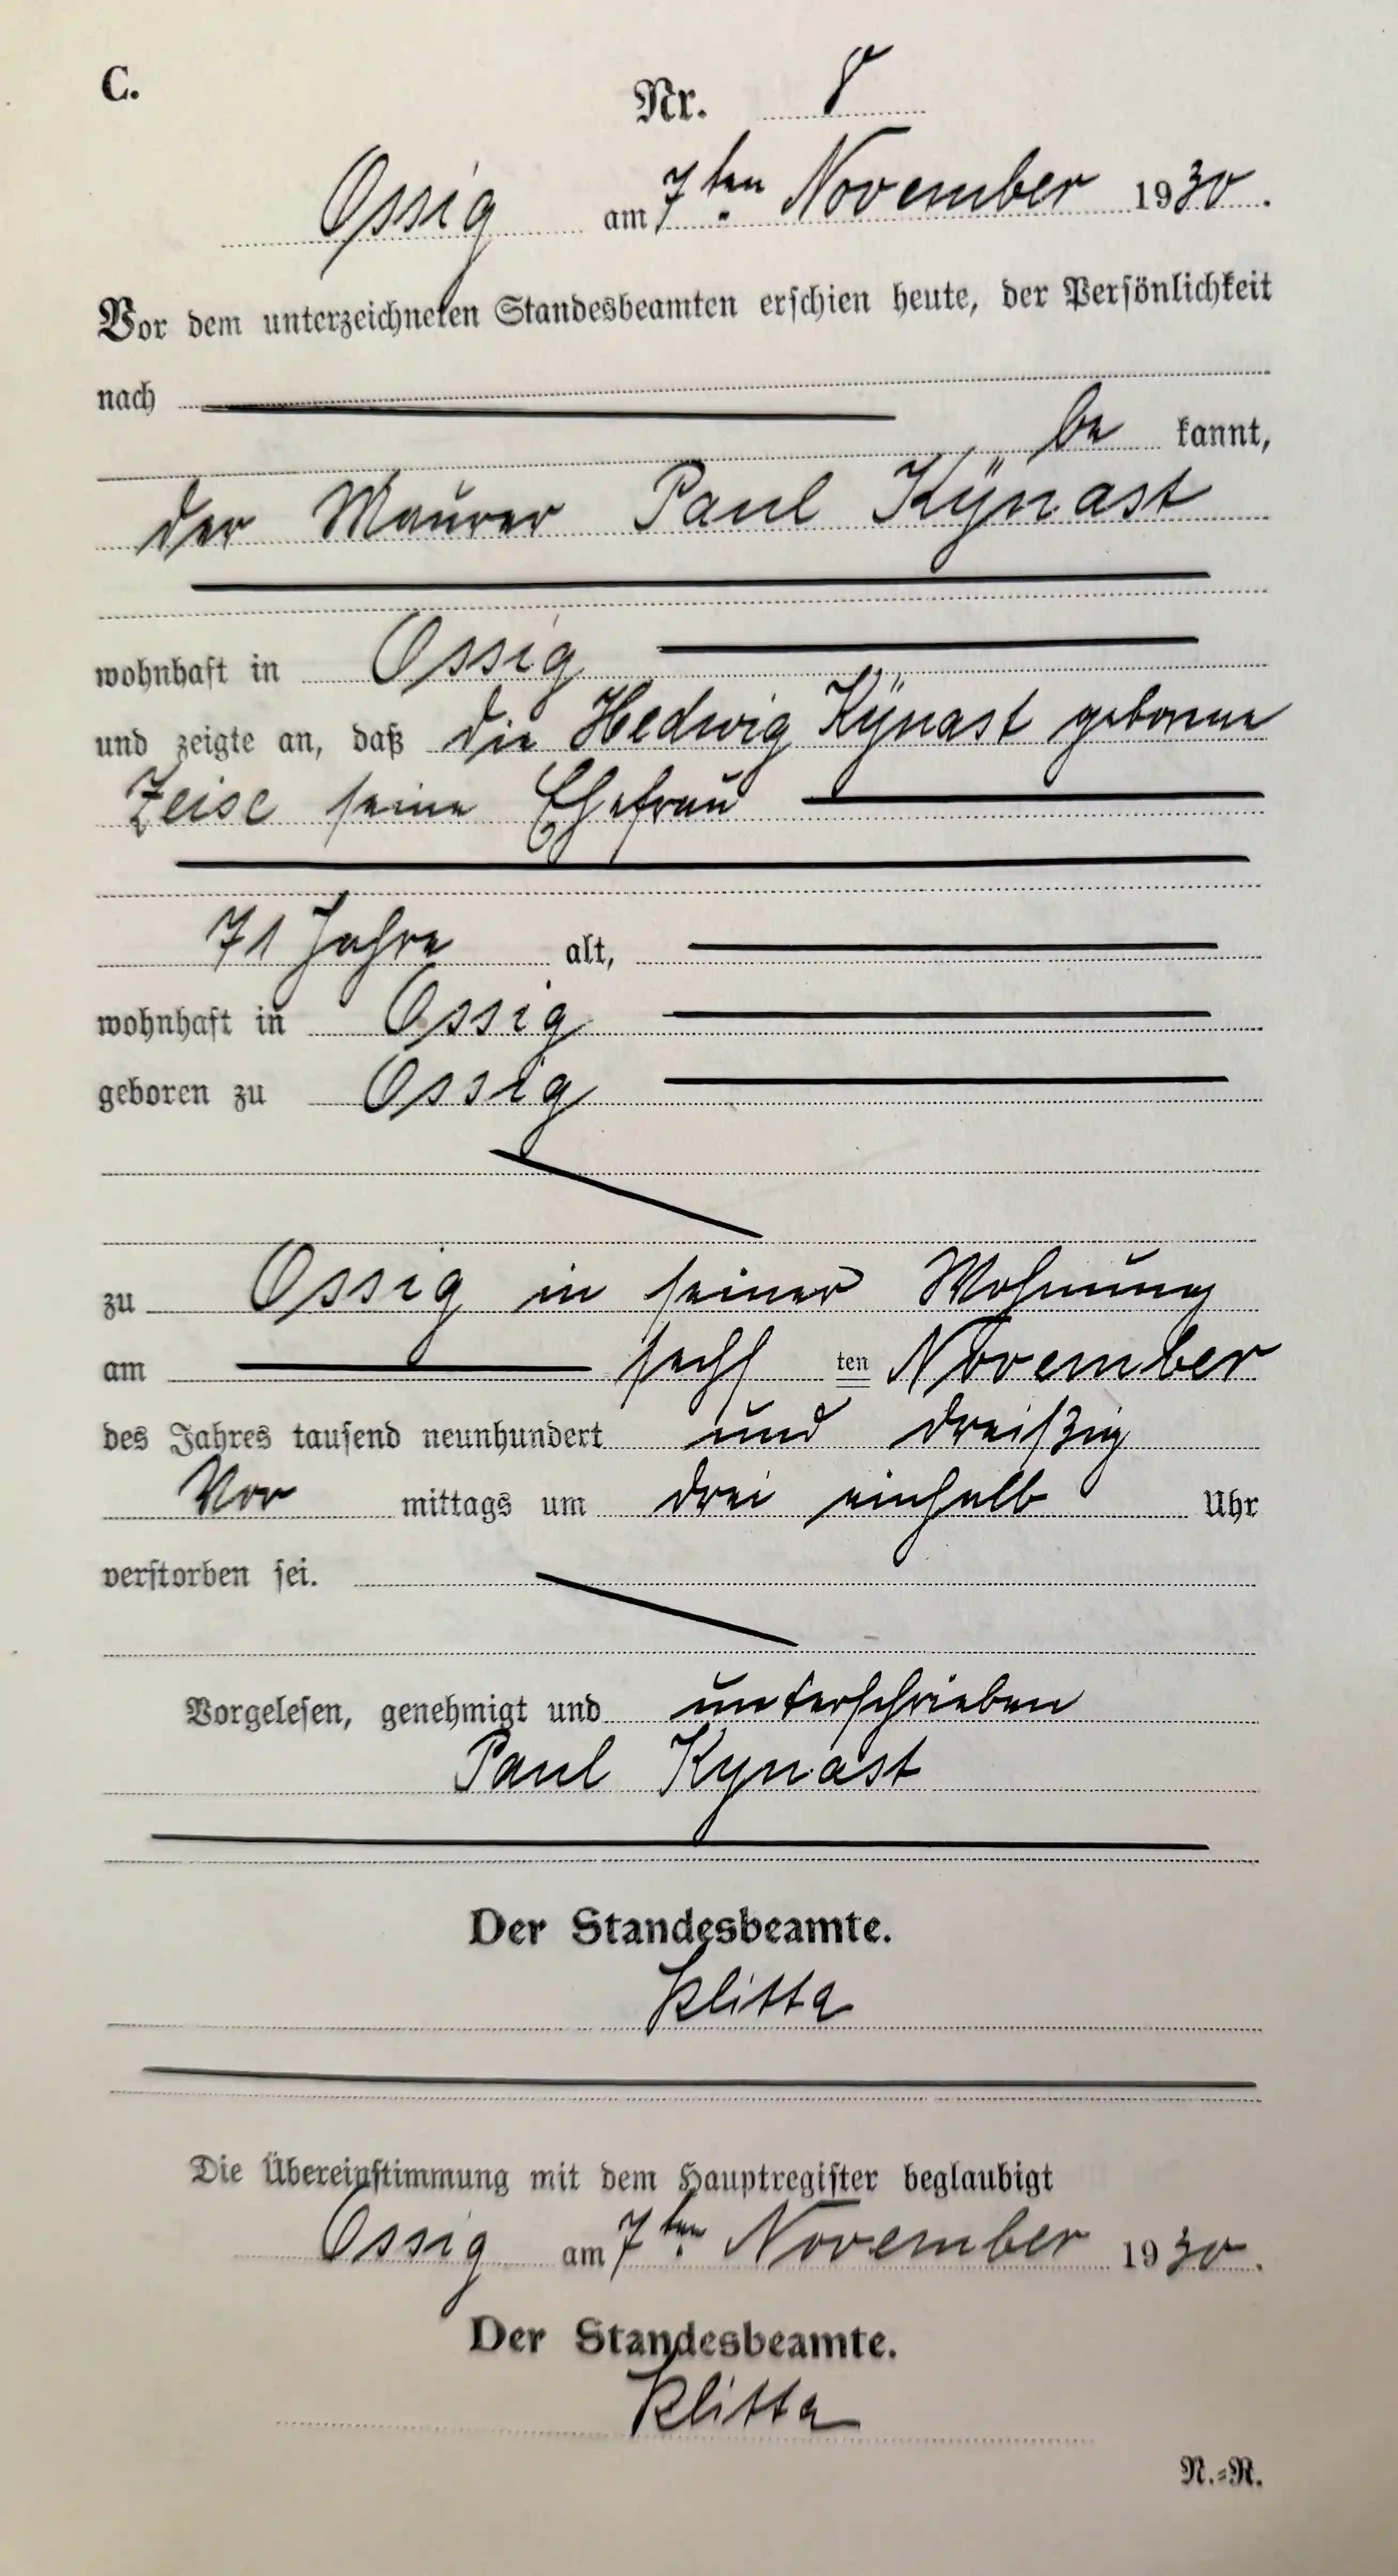 C.
Nr. 8
Ossig am 7ten November 1930.
Vor dem unterzeichneten Standesbeamten erschien heute, der Persönlichkeit
nach
be kannt,
der Maurer Paul Kÿnast
wohnhaft in Ossig
und zeigte an, daß die Hedwig Kÿnast geborene
Zeise seine Ehefrau
71 Jahre alt,
wohnhaft in Ossig
geboren zu Ossig
zu Ossig in seiner Wohnung
am sechs ten November
des Jahres tausend neunhundert und dreißig
Vor mittags um drei einhalb Uhr
verstorben sei.
Vorgelesen, genehmigt und unterschrieben
Paul Kynast
Der Standesbeamte.
Klitta
Die Übereinstimmung mit dem Hauptregister beglaubigt
Ossig am 7ten November 1930.
Der Standesbeamte.
Klitta
N.=R.